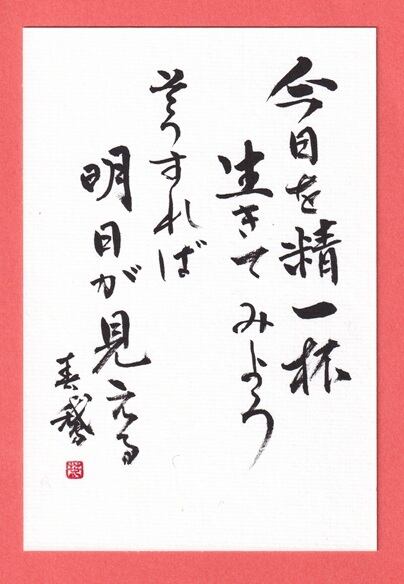 今日を精一杯
生きてみよう
そうすれば
明日が見える
春鵞